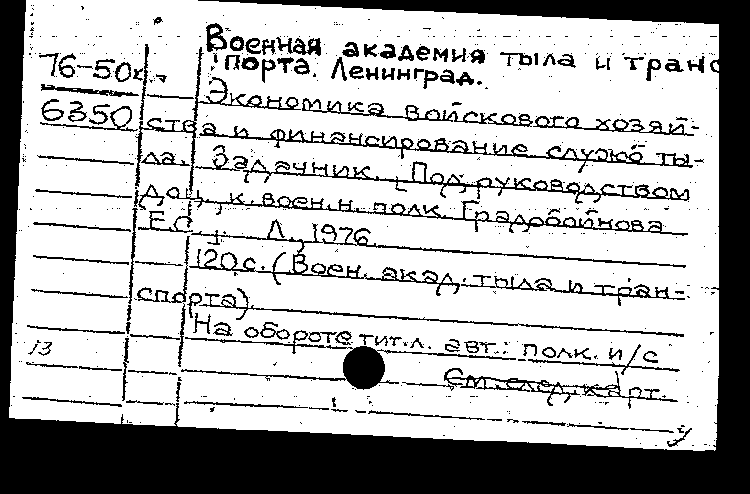 Военная академия тыла и транс
порта. Ленинград.
76-50к.
Экономика войскового хозяй-
6350
ства и финансирование служб ты-
ла. Задачник. Под руководством
доц., к. воен. н. полк. Градобойнова
Е.С. Л., 1976.
120 с. (Воен. акад. тыла и тран-
спорта)
На обороте тит. л. авт.: полк. и/с
13
См. след. карт.
у